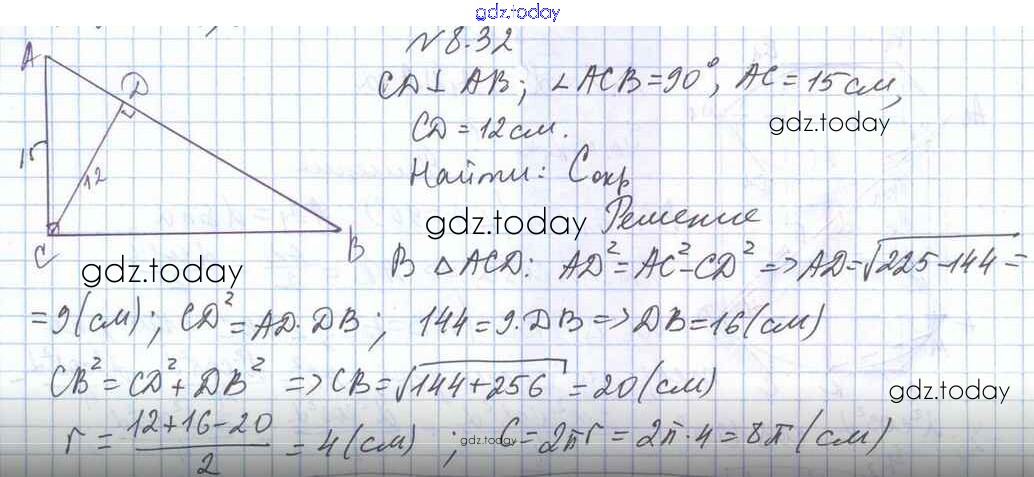 gdz.today
№ 8.32
A
D
15
12
C
B
CD ⊥ AB; ∠ACB = 90°, AC = 15 см,
CD = 12 см.
gdz.today
Найти: Cокр
gdz.today
Решение
gdz.today
В △ACD: AD² = AC² - CD² => AD = √225-144 =
= 9 (см); CD² = AD · DB; 144 = 9 · DB => DB = 16 (см)
CB² = CD² + DB² => CB = √144+256 = 20 (см)
gdz.today
r = (12+16-20)/2 = 4 (см); C = 2πr = 2π · 4 = 8π (см)
gdz.today